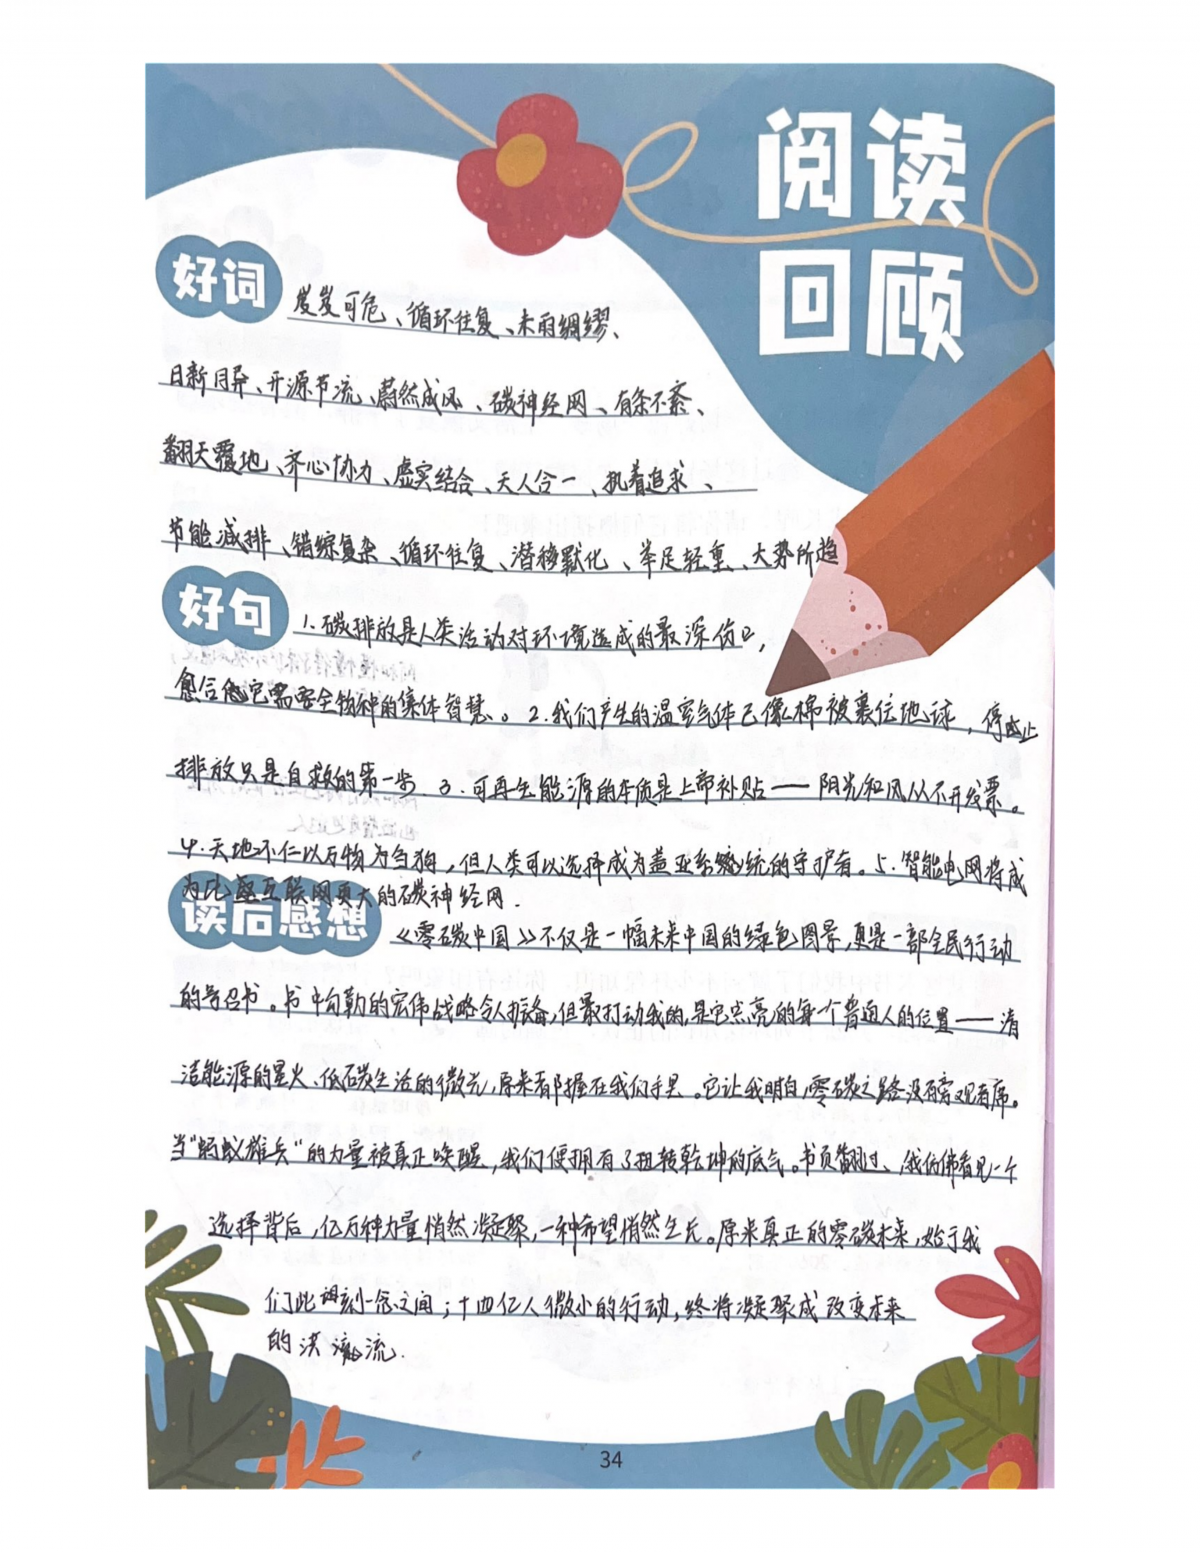 阅读
回顾
好词
岌岌可危、循环往复、未雨绸缪、
日新月异、开源节流、蔚然成风、碳神经网、有条不紊、
翻天覆地、齐心协力、虚实结合、天人合一、执着追求、
节能减排、错综复杂、循环往复、潜移默化、举足轻重、大势所趋
好句
1.碳排放是人类活动对环境造成的最深伤口,
愈合它需要全物种的集体智慧。2.我们产生的温室气体已像棉被裹住地球,停止
排放只是自救的第一步.3.可再生能源的本质是上帝补贴——阳光和风从不开发票。
4.天地不仁以万物为刍狗,但人类可以选择成为盖亚系统的守护者。5.智能电网将成
为比互联网更大的碳神经网.
读后感想
《零碳中国》不仅是一幅未来中国的绿色图景,更是一部全民行动
的号召书。书中勾勒的宏伟战略令人振奋,但最打动我的,是它点亮的每一个普通人的位置——清
洁能源的星火、低碳生活的微光,原来都握在我们手里。它让我明白,零碳之路没有旁观者席。
当"蚂蚁雄兵"的力量被真正唤醒,我们便拥有了扭转乾坤的底气。书页翻过、我仿佛看见一个
选择背后,亿万种力量悄然凝聚,一种希望悄然生长。原来真正的零碳未来,始于我
们此刻一念之间;十四亿人微小的行动,终将凝聚成改变未来
的洪流.
34